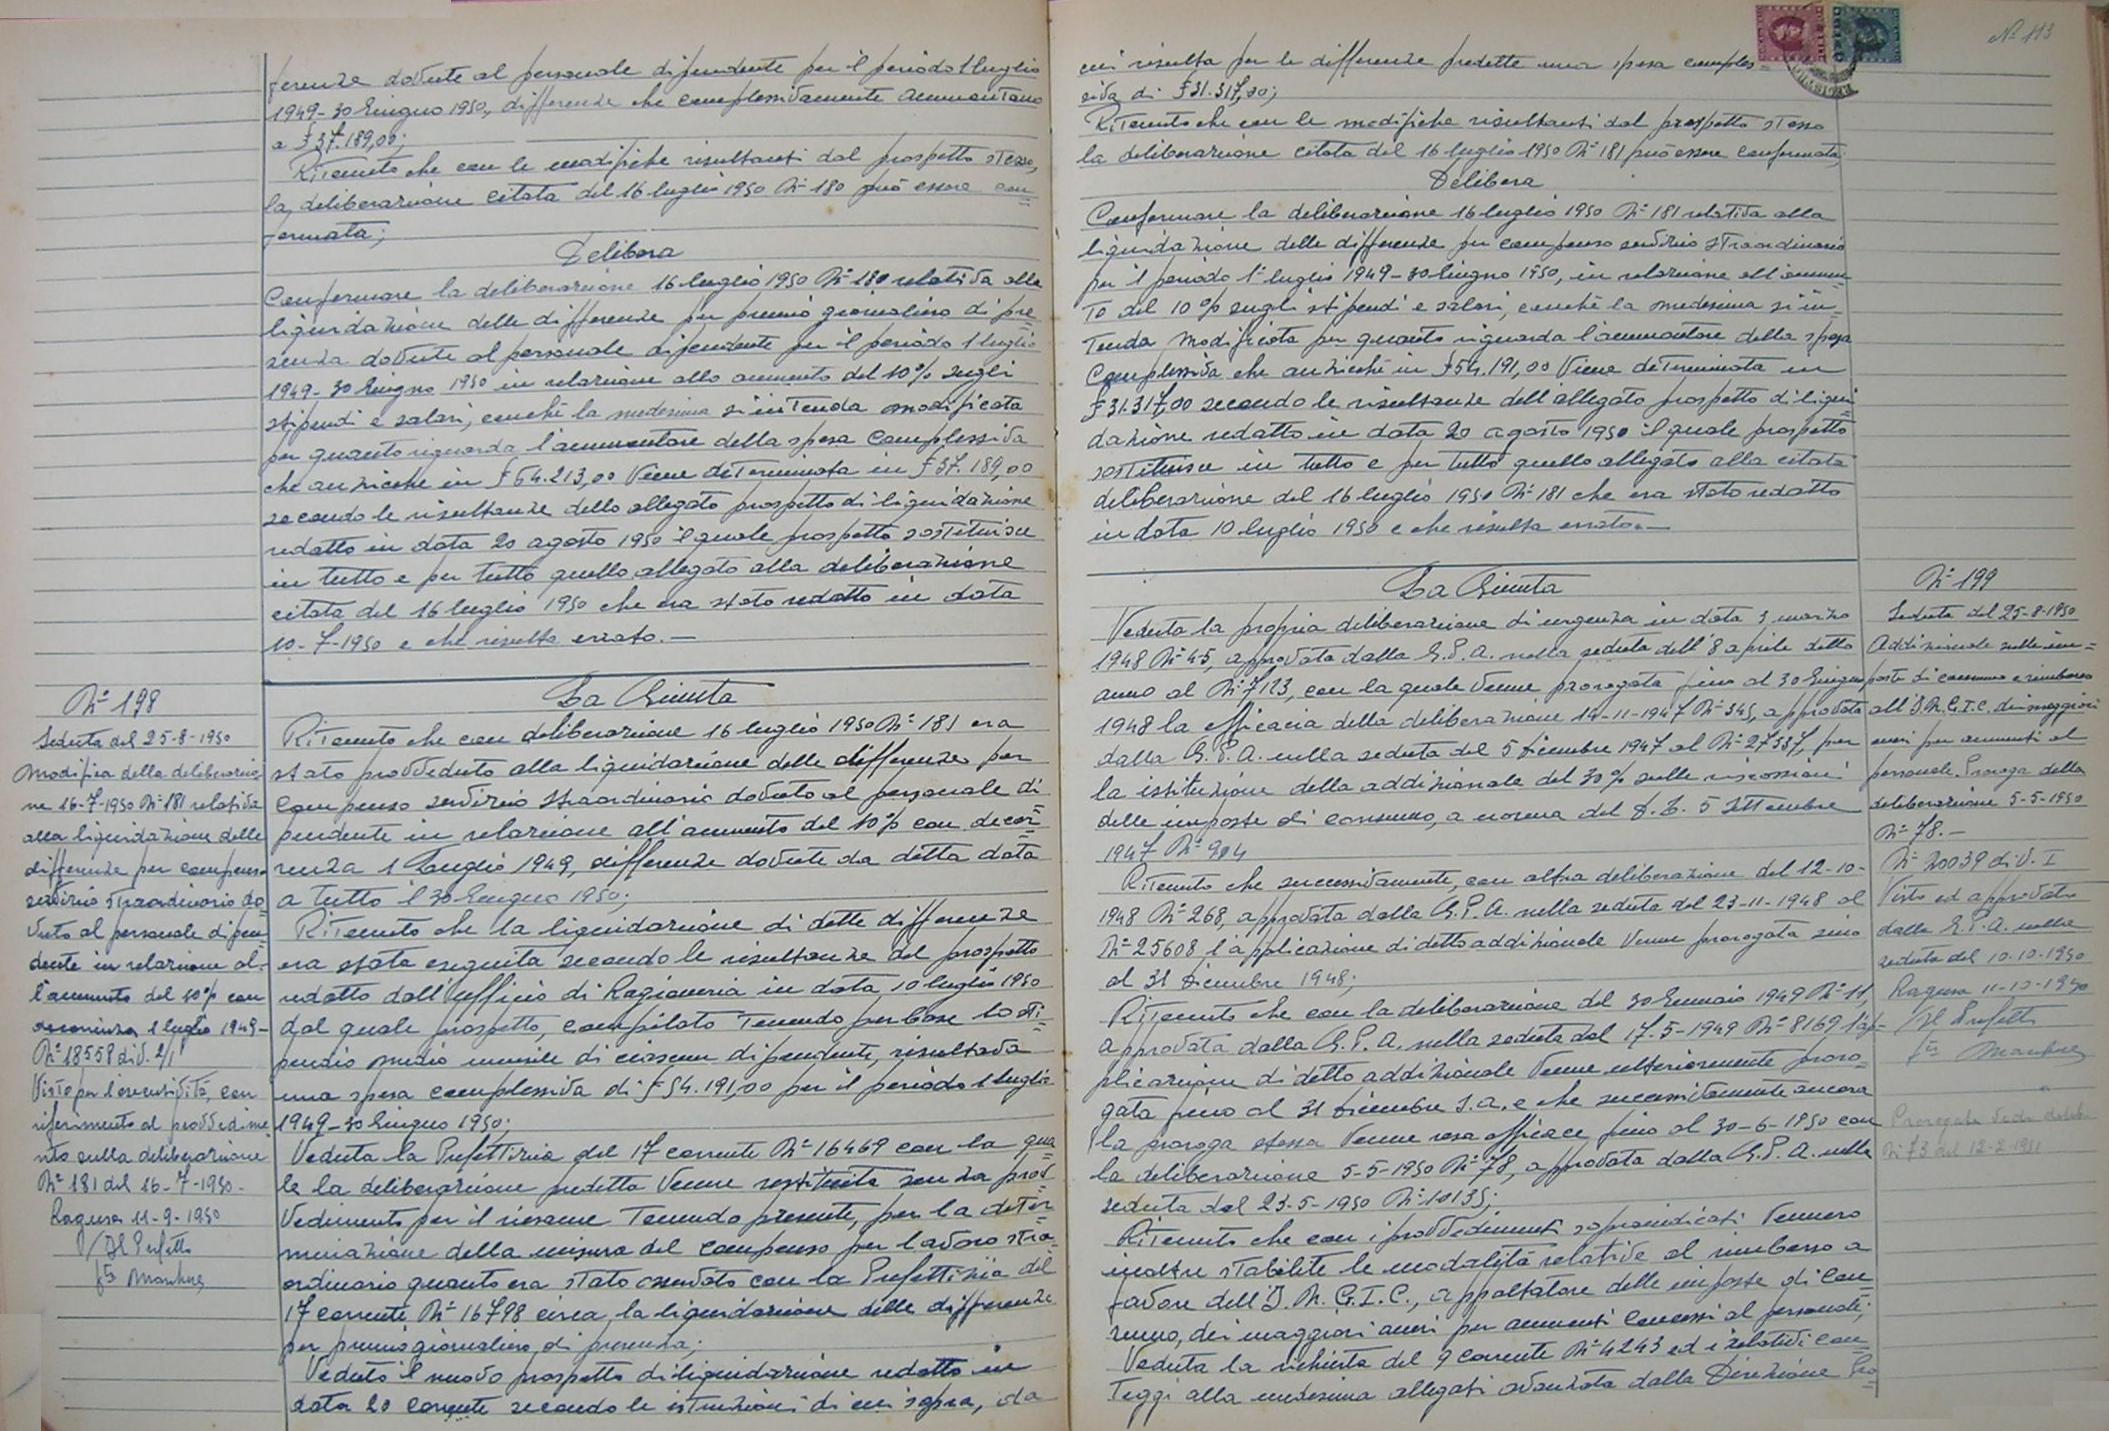 ferenze dovute al personale dipendente per il periodo 1 luglio
1949-30 Giugno 1950, differenze che complessivamente ammontano
a £ 37.189,00;
Ritenuto che con le modifiche risultanti dal prospetto stesso,
la deliberazione citata del 16 luglio 1950 N° 180 può essere con=
fermata;
Delibera
Confermare la deliberazione 16 luglio 1950 N° 180 relativa alla
liquidazione delle differenze per premio giornaliero di pre=
senza dovute al personale dipendente per il periodo 1 luglio
1949-30 Giugno 1950 in relazione allo aumento del 10% sugli
stipendi e salari, conchè la medesima si intenda modificata
per quanto riguarda l'ammontare della spesa complessiva
che anzichè in £ 64.213,00 viene determinata in £ 37.189,00
secondo le risultanze dello allegato prospetto di liquidazione
redatto in data 20 agosto 1950 il quale prospetto sostituisce
in tutto e per tutto quello allegato alla deliberazione
citata del 16 luglio 1950 che era stato redatto in data
10-7-1950 e che risulta errato.—
N° 198
Seduta del 25-8-1950
Modifica della deliberazio
ne 16-7-1950 N° 181 relativa
alla liquidazione delle
differenze per compenso
servizio straordinario do=
vuto al personale dipen=
dente in relazione al=
l'aumento del 10% con
decorrenza 1 luglio 1949-
N° 18558 div. 2/1
Visto per l'esecutività, con
riferimento al provvedime
nto sulla deliberazione
N° 181 del 16-7-1950-
Ragusa 11-9-1950
Il Prefetto
La Giunta
Ritenuto che con deliberazione 16 luglio 1950 N° 181 era
stato provveduto alla liquidazione delle differenze per
compenso servizio straordinario dovuto al personale di
pendente in relazione all'aumento del 10% con decor=
renza 1 Luglio 1949, differenze dovute da detta data
a tutto il 30 Giugno 1950;
Ritenuto che la liquidazione di dette differenze
era stata eseguita secondo le risultanze del prospetto
redatto dall'ufficio di Ragioneria in data 10 luglio 1950
dal quale prospetto, compilato tenendo per base lo sti=
pendio medio mensile di ciascun dipendente, risultava
una spesa complessiva di £ 54.191,00 per il periodo 1 luglio
1949-30 Giugno 1950;
Veduta la Prefettizia del 17 corrente N° 16469 con la qua
le la deliberazione predetta venne restituita senza prov=
vedimento per il riesame tenendo presente, per la deter=
minazione della misura del compenso per lavoro stra=
ordinario quanto era stato osservato con la Prefettizia del
17 corrente N° 16798 circa la liquidazione delle differenze
per premio giornaliero di presenza;
Veduto il nuovo prospetto di liquidazione redatto in
data 20 corrente secondo le istruzioni di cui sopra, da
N° 113
cui risulta per le differenze predette una spesa comples=
siva di £ 31.317,00;
Ritenuto che con le modifiche risultanti dal prospetto stesso
la deliberazione citata del 16 luglio 1950 N° 181 può essere confermata;
Delibera
Confermare la deliberazione 16 luglio 1950 N° 181 relativa alla
liquidazione delle differenze per compenso servizio straordinario
per il periodo 1° luglio 1949-30 Giugno 1950, in relazione all'aumen
to del 10% sugli stipendi e salari, conchè la medesima si in=
tenda modificata per quanto riguarda l'ammontare della spesa
complessiva che anzichè in £ 54.191,00 viene determinata in
£ 31.317,00 secondo le risultanze dell'allegato prospetto di liqui
dazione redatto in data 20 agosto 1950 il quale prospetto
sostituisce in tutto e per tutto quello allegato alla citata
deliberazione del 16 luglio 1950 N° 181 che era stato redatto
in data 10 luglio 1950 e che risulta errato.—
La Giunta
Veduta la propria deliberazione di urgenza in data 3 marzo
1948 N° 45, approvata dalla G.P.A. nella seduta dell'8 aprile detto
anno al N° 7123, con la quale venne prorogata fino al 30 Giugno
1948 la efficacia della deliberazione 14-11-1947 N° 345, approvata
dalla G.P.A. nella seduta del 5 dicembre 1947 al N° 27537, per
la istituzione della addizionale del 30% sulle riscossioni
delle imposte di consumo, a norma del D.L. 5 Settembre
1947 N° 904
Ritenuto che successivamente, con altra deliberazione del 12-10-
1948 N° 268, approvata dalla G.P.A. nella seduta del 23-11-1948 al
N° 25608 l'applicazione di detto addizionale venne prorogata sino
al 31 Dicembre 1948;
Ritenuto che con la deliberazione del 30 Gennaio 1949 N° 11,
approvata dalla G.P.A. nella seduta del 17-5-1949 N° 8169 l'ap=
plicazione di detto addizionale venne ulteriormente proro=
gata fino al 31 dicembre s.a. e che successivamente ancora
la proroga stessa venne resa efficace fino al 30-6-1950 con
la deliberazione 5-5-1950 N° 78, approvata dalla G.P.A. nella
seduta del 23-5-1950 N° 10135;
Ritenuto che con i provvedimenti sopraindicati vennero
inoltre stabilite le modalità relative al rimborso a
favore dell'I.N.G.I.C., appaltatore delle imposte di con
sumo, dei maggiori oneri per aumenti concessi al personale;
Veduta la richiesta del 9 corrente N° 4243 ed i relativi con=
teggi alla medesima allegati avanzata dalla Direzione Pro=
N° 199
Seduta del 25-8-1950
Addizionale sulle im=
poste di consumo e rimborso
all'I.N.G.I.C. dei maggiori
oneri per aumenti al
personale. Proroga della
deliberazione 5-5-1950
N° 78.—
N° 20039 div. I
Visto ed approvato
dalla G.P.A. nella
seduta del 10-10-1950
Ragusa 11-10-1950
Il Prefetto
Prorogata vedi delib.
N° 73 del 12-2-1951